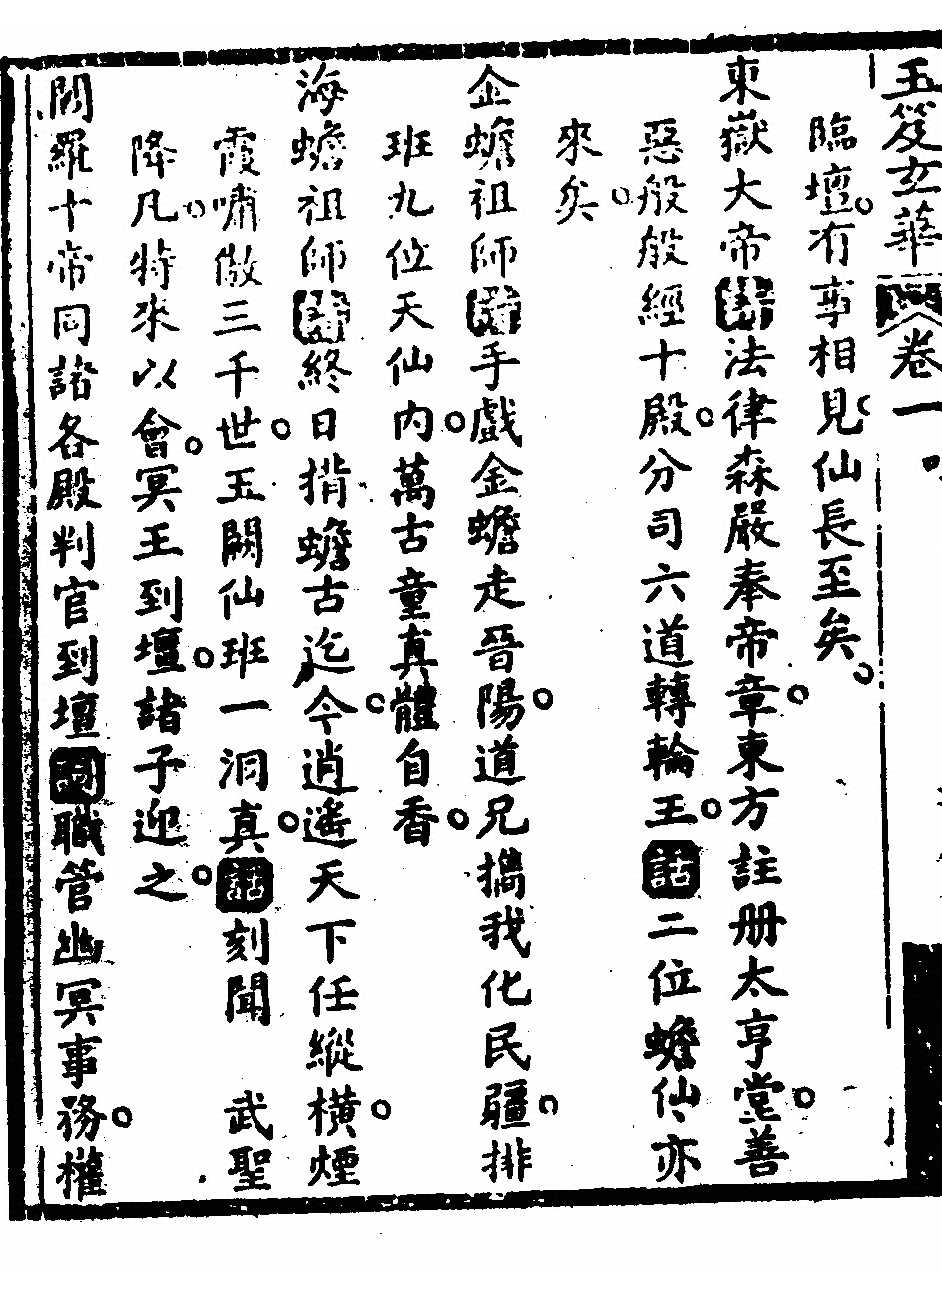 玉笈玄華 卷一
臨壇。有事相見。仙長至矣。
東嶽大帝詩法律森嚴奉帝章。東方註册太亨堂。善
惡般般經十殿。分司六道轉輪王。話二位蟾仙亦
來矣。
金蟾祖師詩手戲金蟾走晉陽。道兄攜我化民疆。排
班九位天仙內。萬古童真體自香。
海蟾祖師詩終日揹蟾古迄今。逍遙天下任縱橫。煙
霞嘯傲三千世。玉闕仙班一洞真。話刻聞 武聖
降凡。特來以會。冥王到壇。諸子迎之。
閻羅十帝同諸各殿判官到壇詞職管幽冥事務。權